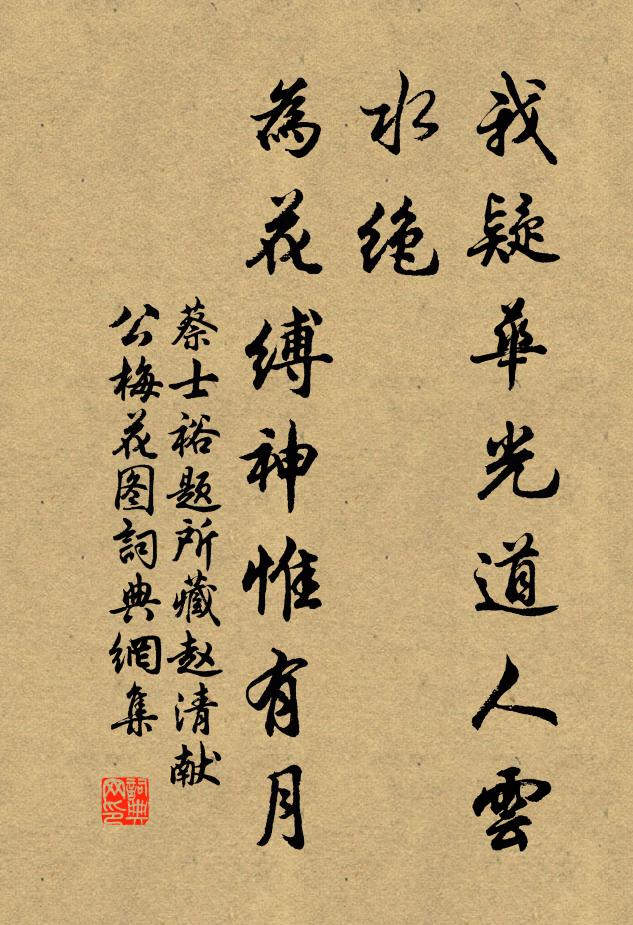 我疑華光道人雲
水绝
為花縛神惟有月
蔡士裕題所藏赵清献
公梅花图詞典網集
詞典
网印